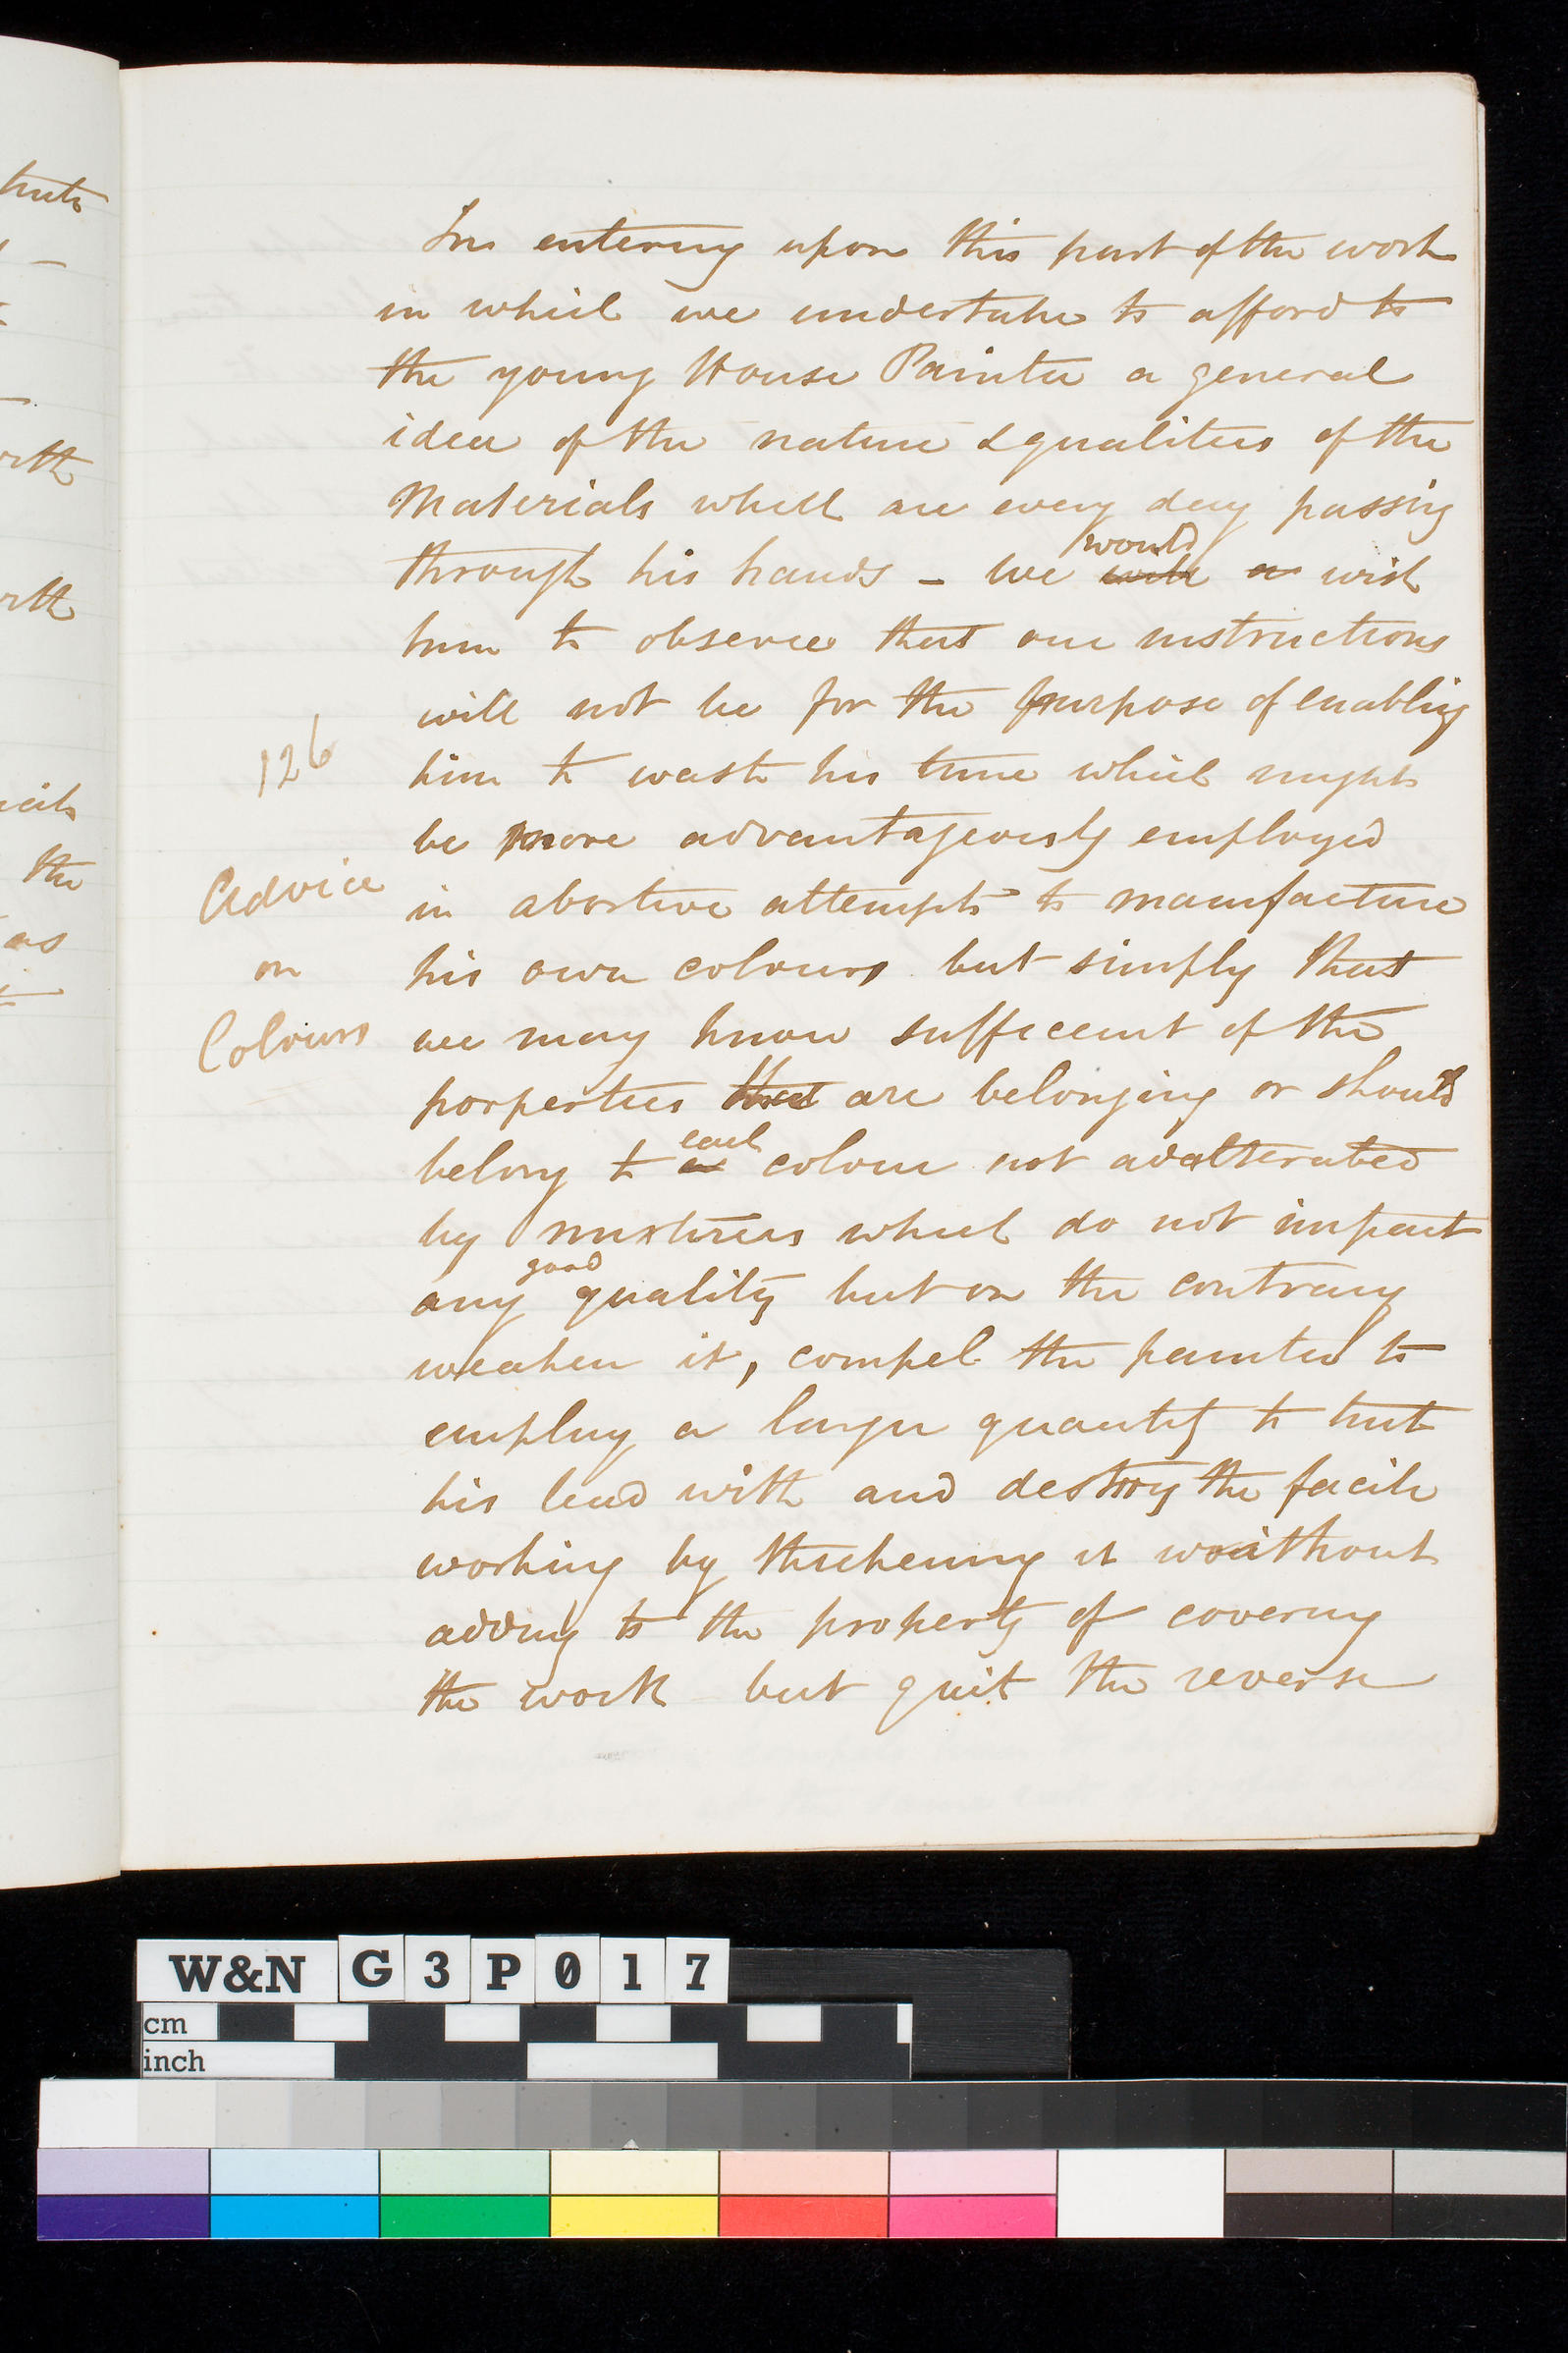 In entering upon this part of the work
in which we undertake to afford to
the young House Painter a general
idea of the nature & qualities of the
Materials which are every day passing
would
through his hands - We will a wish
him to observe that our instructions
will not be for the purpose of enabling
126
him to waste his time which might
be more advantageously employed
Advice
in abortive attempts to manufacture
on
his own colours but simply that
Colours
we may know sufficeent of the
porperties that are belonging or should
each
belong to a colour not adalterated
by mixtures which do not impart
good
any quality but on the contrary
weaken it, compel the painter to
employ a larger quantity to tint
his lead with and destroy the facile
working by thickening it without
adding to the property of covering
the work but quit the reverse
tints
the
as
W&N G3P017
cm
inch